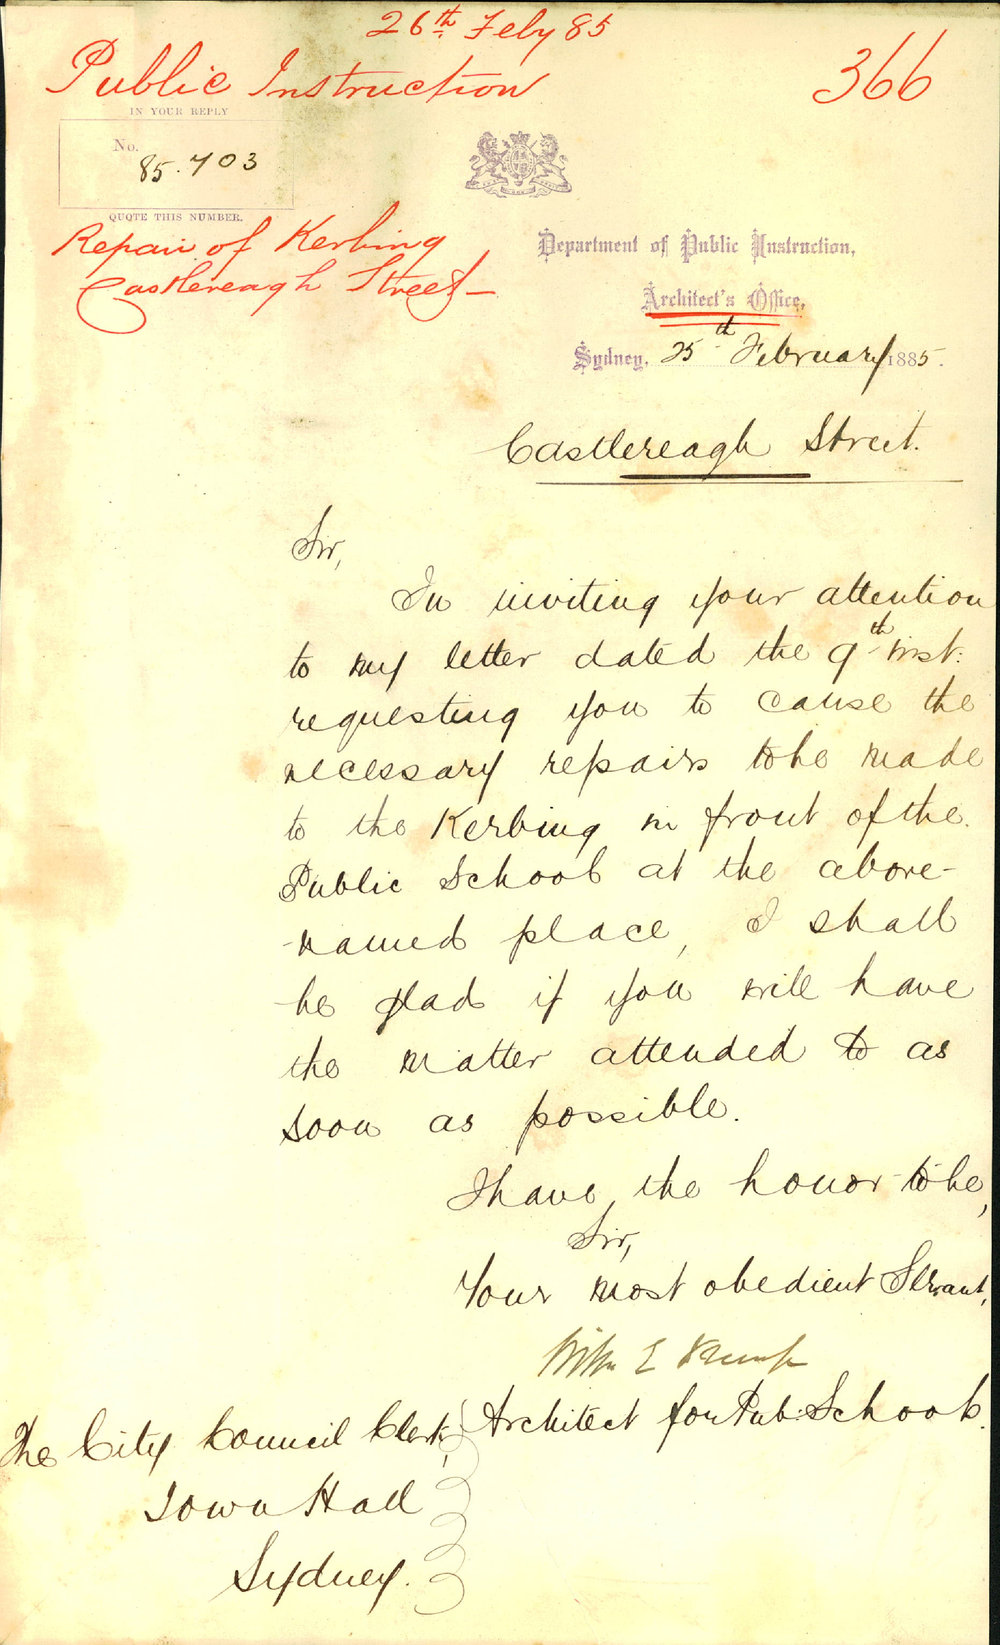 26th Feby 85
Public Instruction
366
IN YOUR REPLY
No. 85.703
QUOTE THIS NUMBER.
Repair of Kerbing
Castlereagh Street
Department of Public Instruction,
Architect's Office,
Sydney, 25th February 1885.
Castlereagh Street.
Sir,
In inviting your attention
to my letter dated the 9th inst:
requesting you to cause the
necessary repairs to be made
to the Kerbing in front of the
Public School at the above-
named place, I shall
be glad if you will have
the matter attended to as
soon as possible.
I have the honor to be,
Sir,
Your most obedient Servant,
E Kemp
Architect for Pub: Schools.
The City Council Clerk,
Town Hall
Sydney.